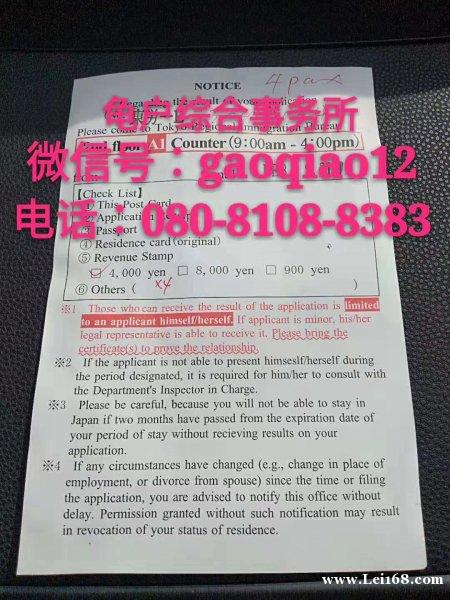 NOTICE
4 pax
the result of your application
Please come to Tokyo Regional Immigration Bureau
兔户综合事务所
2nd floor A1 Counter (9:00am - 4:00pm)
微信号：gaoqiao12
from
【Check List】
① This Post Card
电话：080-8108-8383
② Application
③ Passport
④ Residence card (original)
⑤ Revenue Stamp
☑ 4,000 yen □ 8,000 yen □ 900 yen
⑥ Others ( ×4 )
※1 Those who can receive the result of the application is limited
to an applicant himself/herself. If applicant is minor, his/her
legal representative is able to receive it. Please bring the
certificate(s) to prove the relationship.
※2 If the applicant is not able to present himseslf/herself during
the period designated, it is required for him/her to consult with
the Department's Inspector in Charge.
※3 Please be careful, because you will not be able to stay in
Japan if two months have passed from the expiration date of
your period of stay without recieving results on your
application.
※4 If any circumstances have changed (e.g., change in place of
employment, or divorce from spouse) since the time or filing
the application, you are advised to notify this office without
delay. Permission granted without such notification may result
in revocation of your status of residence.
www.Lei168.com